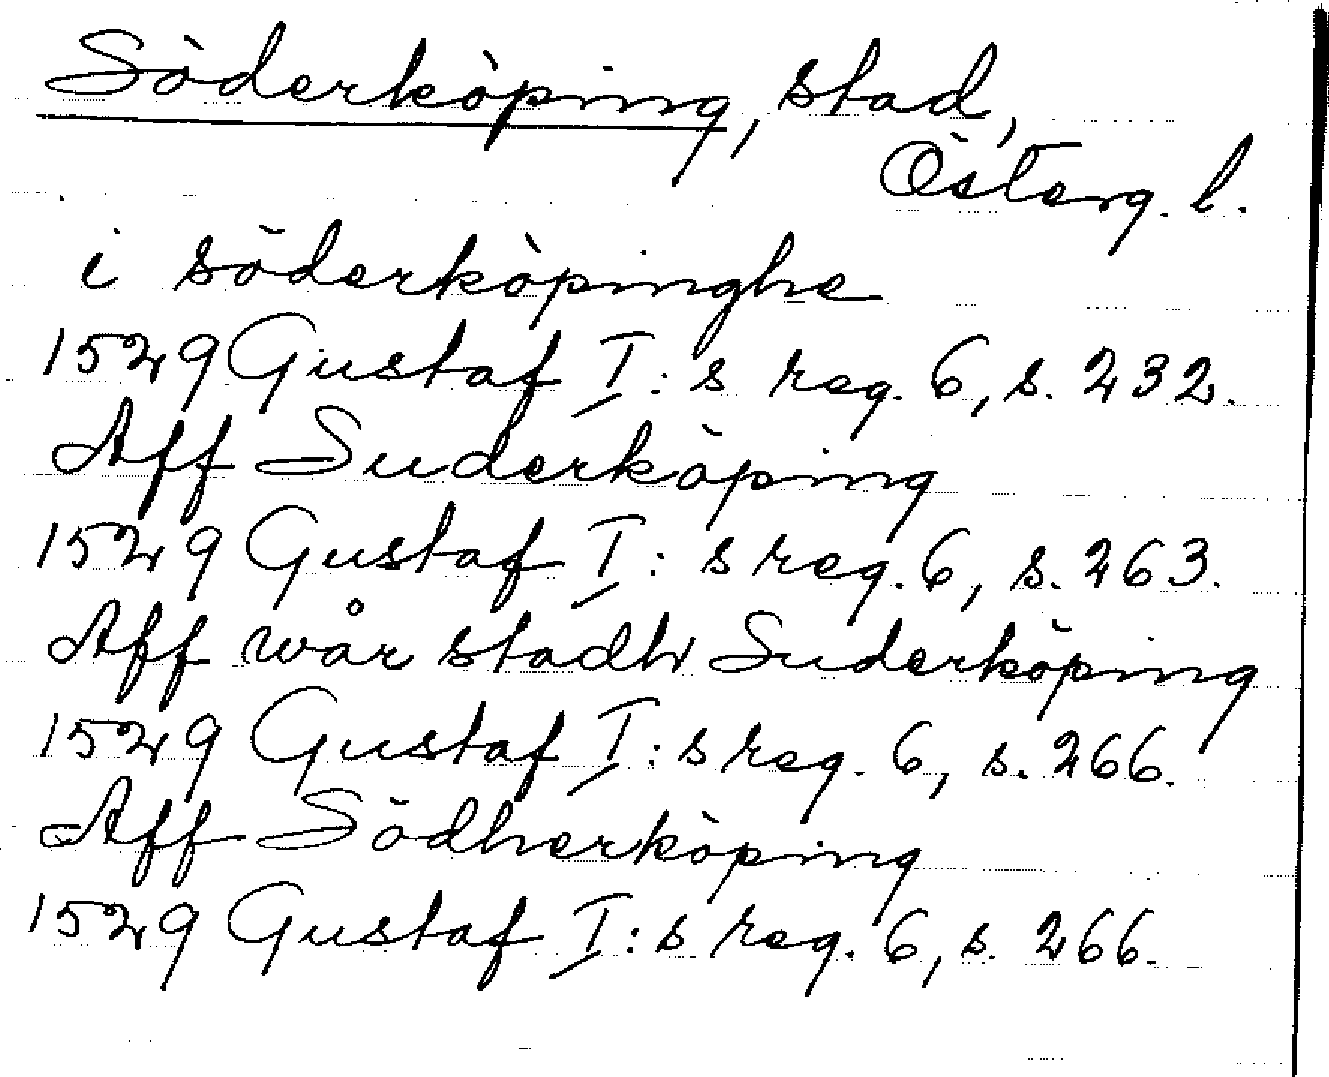 Söderköping, stad,
Österg. l.
i söderköpinghe
1529 Gustaf I: s reg. 6, s. 232.
Aff Suderköping
1529 Gustaf I: s reg. 6, s. 263.
Aff wår stadh Suderköping
1529 Gustaf I: s reg. 6, s. 266.
Aff Södherköping
1529 Gustaf I: s reg. 6, s. 266.